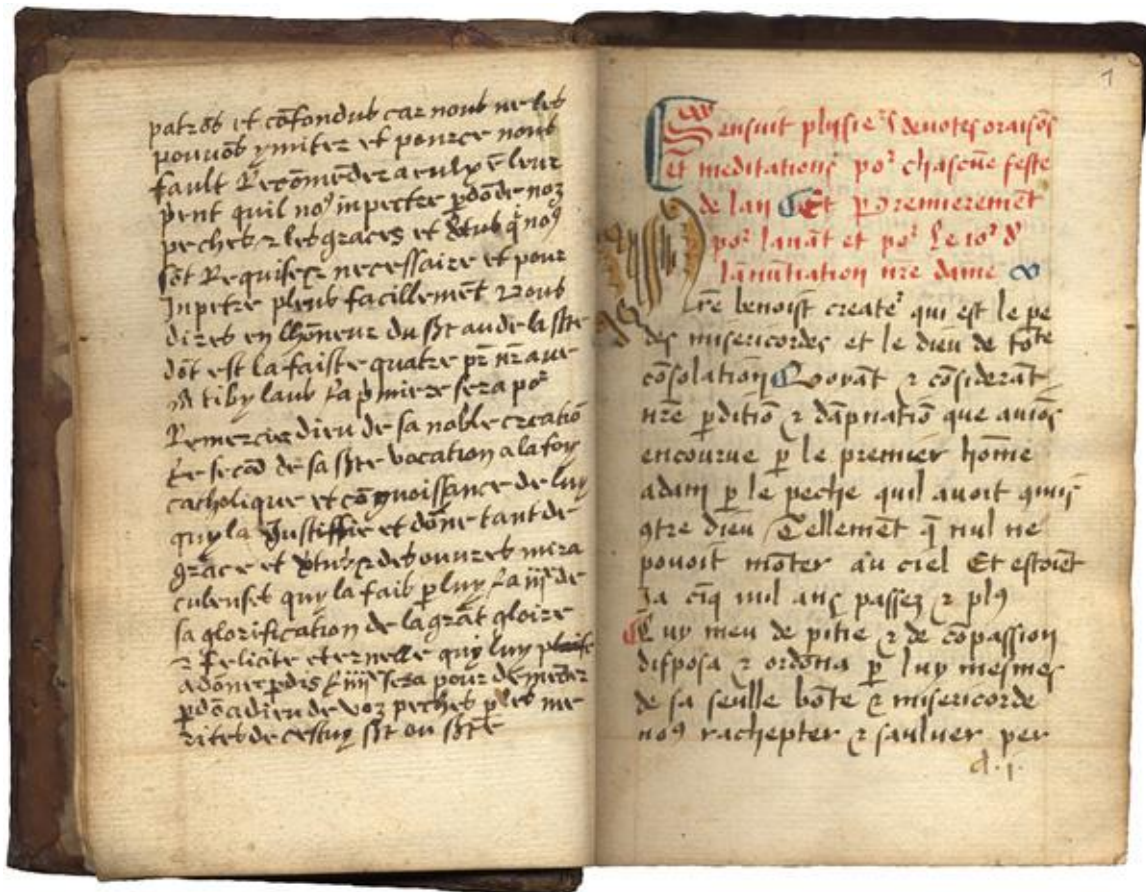 patrõs et cõfondus car nous ne les
pouvõs ymiter et pource nous
fault Recõmēder a eulx ē leur
pñt quil no⁹ inpectre pdõ de noz
peches ⁊ les graces et q̄ no⁹
sõt Requises ⁊ necessaire et pour
Inpetre pleus facillemēt ⁊ vous
dires en lhõneur du sñt au de la sñte
dõt est la faiste quatre pr̄ nr̄ ave
La pmiere sera poʳ
Remercier dieu de sa noble creatiõ
Le secõd de sa sñte vocation a la foy
catholique et cõgnoissance de luy
quy la Justiffie et dõne tant de
grace et ⁊ des ouvres mira
culeuses quy la fais p luy La iijᵉ de
sa glorification de la grāt gloire
⁊ felicite eternelle quy luy plaise
a dõner pdis L iiijᵉ sera pour demāder
pdõ a dieu de voz peches p les me
rites de cestuy sñt ou sñte
1
Sensuit plusieʳs devotes oraisõs
et meditations poʳ chascūe feste
de lan Et Premierement
poʳ lavāt et poʳ Le ioʳ d
lānūtiation nr̄e dame
nr̄e benoist createʳ qui est le pe
des misericordes et le dieu de tote
cõsolation Voyant ⁊ cõsiderant
nr̄e pditiõ ⁊ dāpnatiõ que aviõs
encourue p le premier hõme
adam p le peche quil avoit
9tre dieu Tellemēt q̄ nul ne
povoit mõter au ciel Et estoiēt
ja cīq mil ans passez ⁊ pl⁹
Luy meu de pitie ⁊ de cõpassion
disposa ⁊ ordõna p luy mesmes
de sa seulle bõte ⁊ misericorde
no⁹ rachepter ⁊ saulver per
a.j.